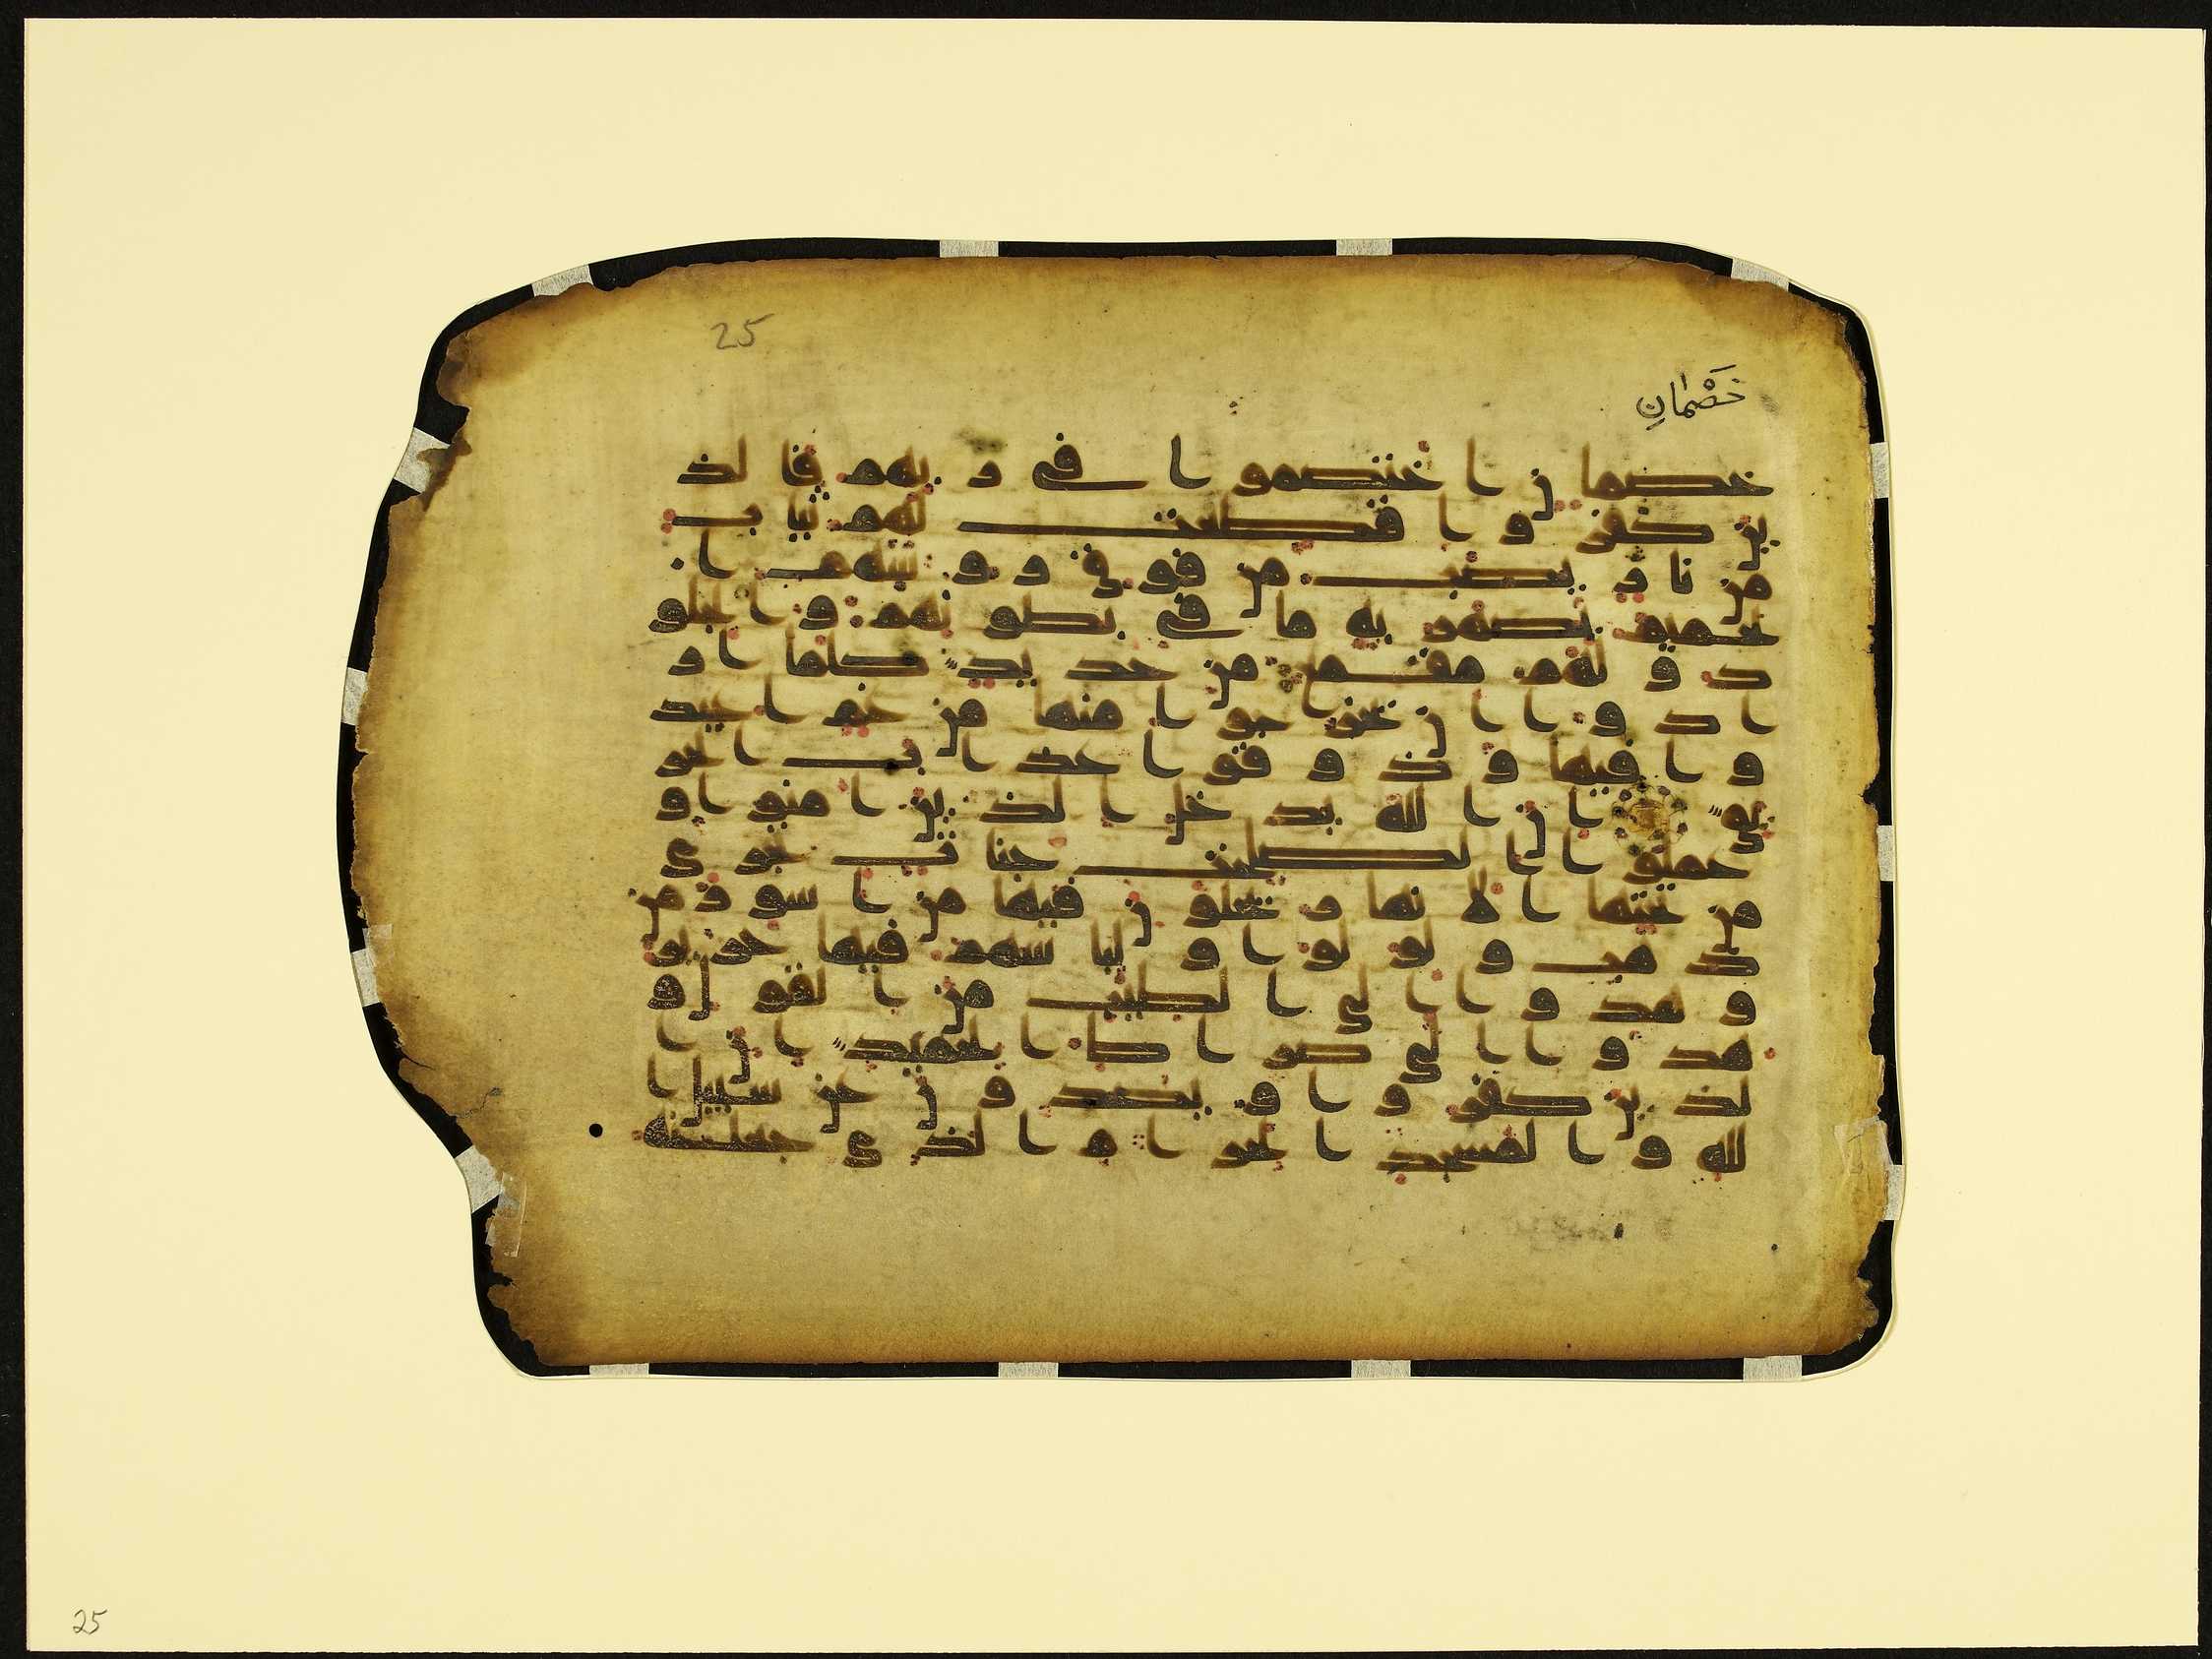 25
خَصْمَانِ
خصمان اختصموا في ربهم فالذ
ين كفروا قطعت لهم ثياب
من نار يصب من فوق روسهم ا
لحميم يصهر به ما في بطونهم والجلو
د ولهم مقمع من حديد كلما ار
ادوا ان يخرجوا منها من غم اعيد
وا فيها وذوقوا عذاب الحر
يق ان الله يدخل الذين امنوا و
عملوا الصلحت جنات تجري
من تحتها الانهار يحلون فيها من اسور من
ذهب ولولوا ولباسهم فيها حرير
وهدوا الى الطيب من القول و
هدوا الى صراط الحميد ان ا
لذين كفروا ويصدون عن سبيل ا
لله والمسجد الحرام الذي جعلنه
25